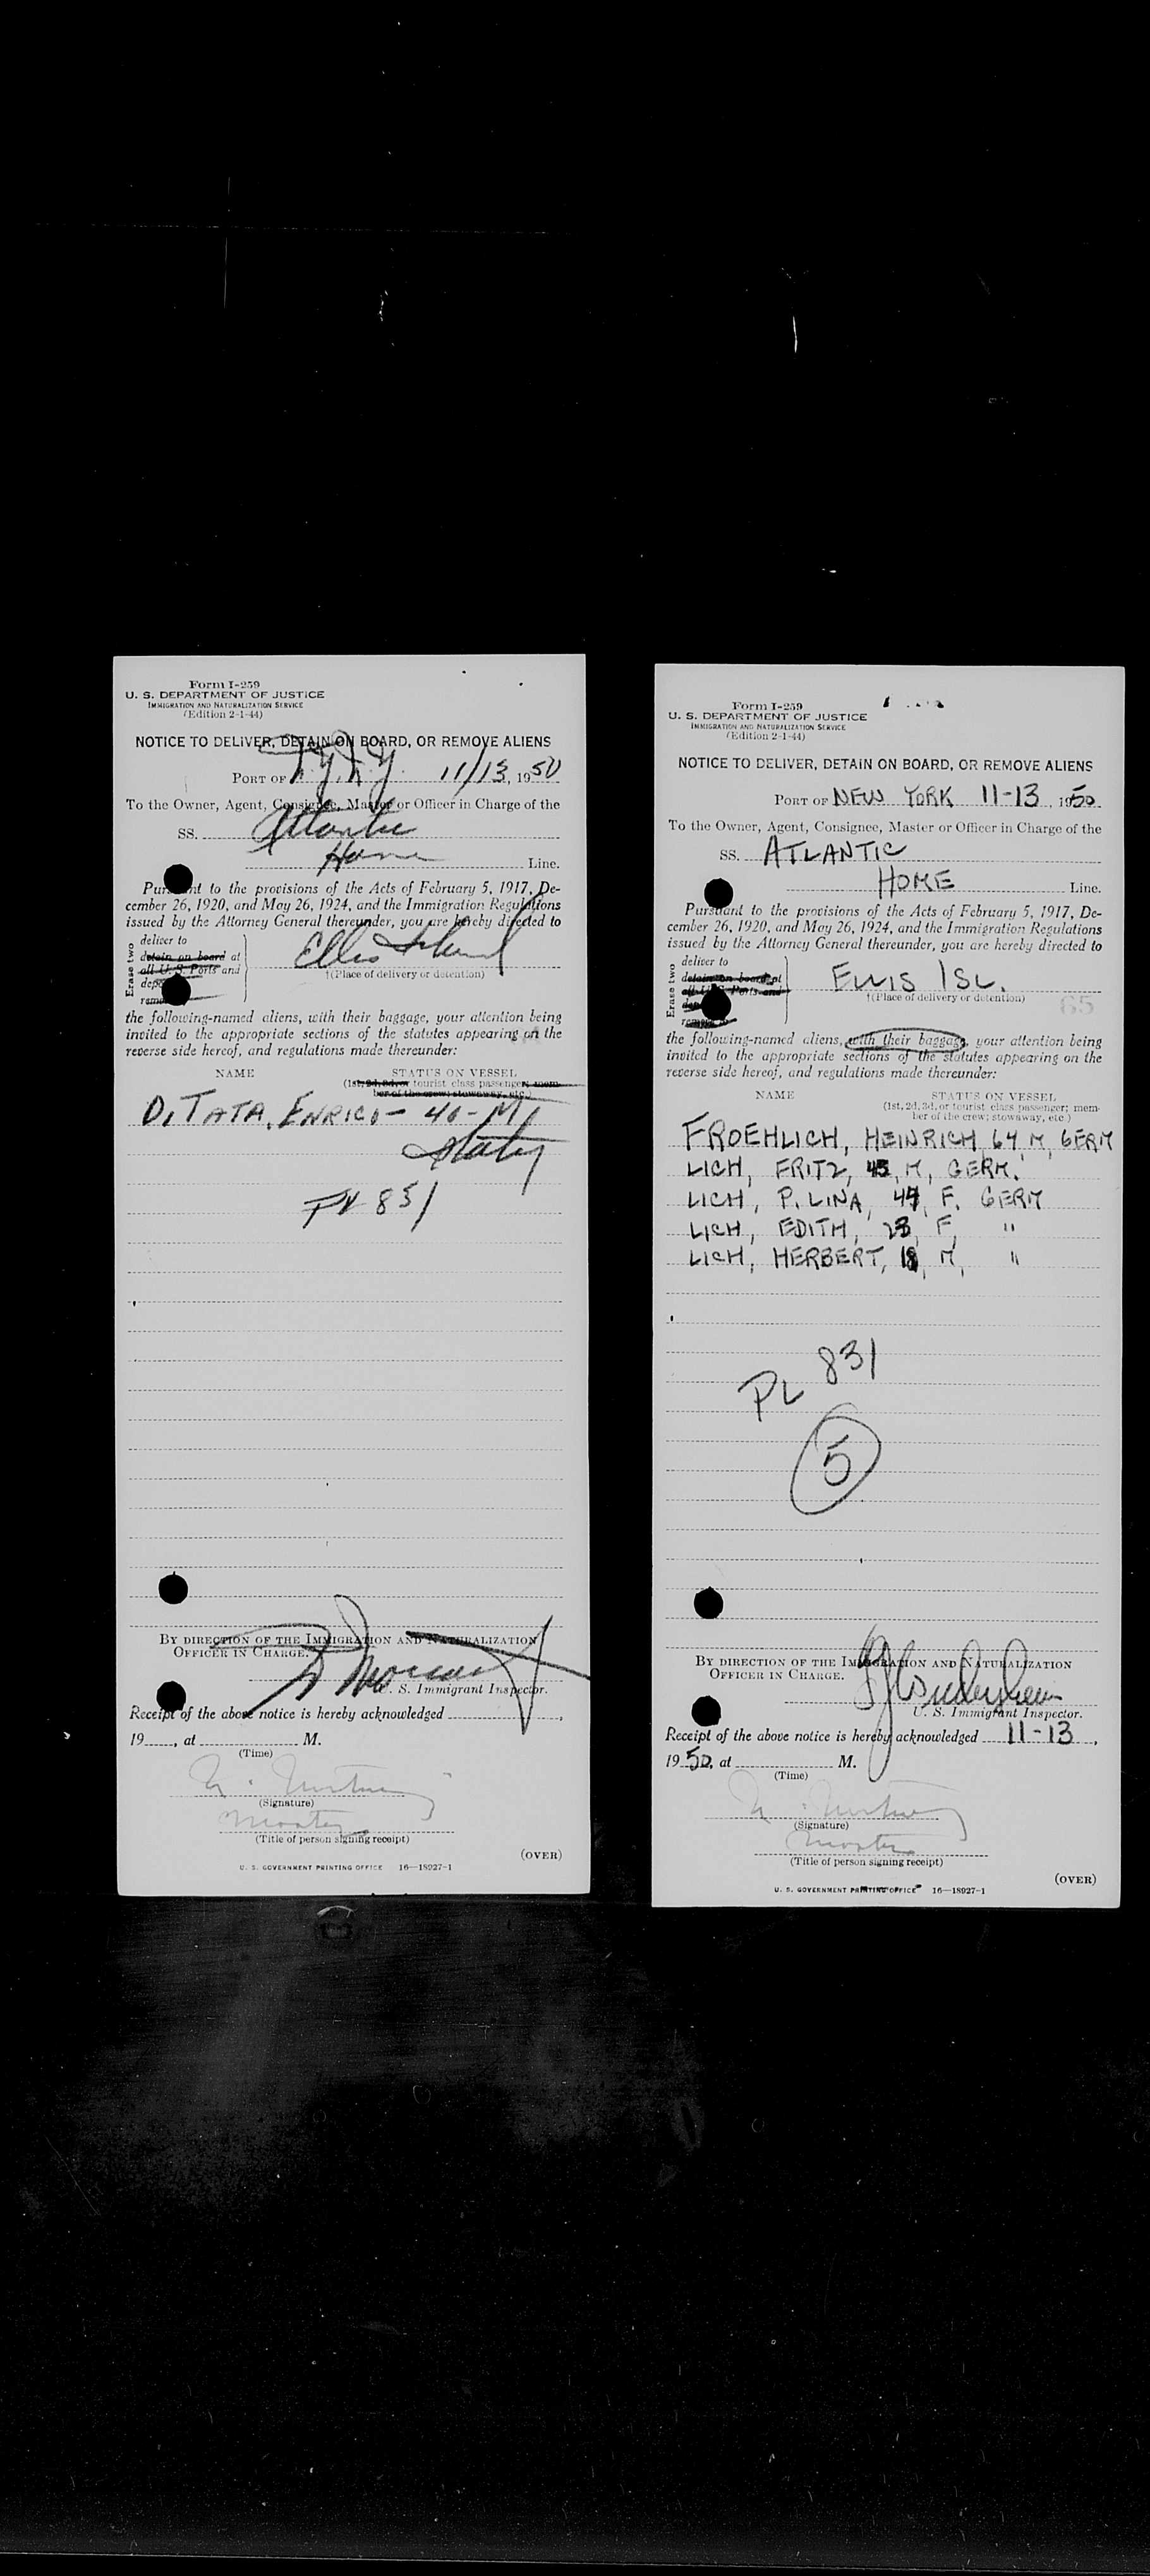 Form I-259
U. S. DEPARTMENT OF JUSTICE
IMMIGRATION AND NATURALIZATION SERVICE
(Edition 2-1-44)
NOTICE TO DELIVER, DETAIN ON BOARD, OR REMOVE ALIENS
PORT OF N.Y.N.Y. 11/13, 1950
To the Owner, Agent, Consignee, Master or Officer in Charge of the
SS. Atlantic
Home Line.
Pursuant to the provisions of the Acts of February 5, 1917, De-
cember 26, 1920, and May 26, 1924, and the Immigration Regulations
issued by the Attorney General thereunder, you are hereby directed to
Erase two
deliver to
detain on board at
all U. S. Ports and
Ellis Island
†(Place of delivery or detention)
the following-named aliens, with their baggage, your attention being
invited to the appropriate sections of the statutes appearing on the
reverse side hereof, and regulations made thereunder:
NAME STATUS ON VESSEL
(1st, 2d, 3d, or tourist class passenger; mem-
ber of the crew; stowaway, etc.)
DiTATA, ENRICO - 40 - M
831
BY DIRECTION OF THE IMMIGRATION AND NATURALIZATION
OFFICER IN CHARGE.
U. S. Immigrant Inspector.
Receipt of the above notice is hereby acknowledged ,
19 , at M.
(Time)
(Signature)
Master
(Title of person signing receipt)
(OVER)
U. S. GOVERNMENT PRINTING OFFICE 16—18927-1
Form I-259
U. S. DEPARTMENT OF JUSTICE
IMMIGRATION AND NATURALIZATION SERVICE
(Edition 2-1-44)
NOTICE TO DELIVER, DETAIN ON BOARD, OR REMOVE ALIENS
PORT OF NEW YORK 11-13, 1950.
To the Owner, Agent, Consignee, Master or Officer in Charge of the
SS. ATLANTIC
HOME Line.
Pursuant to the provisions of the Acts of February 5, 1917, De-
cember 26, 1920, and May 26, 1924, and the Immigration Regulations
issued by the Attorney General thereunder, you are hereby directed to
Erase two
deliver to
detain on board at
all U. S. Ports and
ELLIS ISL.
†(Place of delivery or detention)
65
the following-named aliens, with their baggage, your attention being
invited to the appropriate sections of the statutes appearing on the
reverse side hereof, and regulations made thereunder:
NAME STATUS ON VESSEL
(1st, 2d, 3d, or tourist class passenger; mem-
ber of the crew; stowaway, etc.)
FROEHLICH, HEINRICH 64, M, GERM
LICH, FRITZ, 45, M, GERM.
LICH, P. LINA, 44, F. GERM
LICH, EDITH, 23, F, "
LICH, HERBERT, 18, M, "
PL 831
5
BY DIRECTION OF THE IMMIGRATION AND NATURALIZATION
OFFICER IN CHARGE.
U. S. Immigrant Inspector.
Receipt of the above notice is hereby acknowledged 11-13,
1950, at M.
(Time)
(Signature)
Master
(Title of person signing receipt)
(OVER)
U. S. GOVERNMENT PRINTING OFFICE 16—18927-1